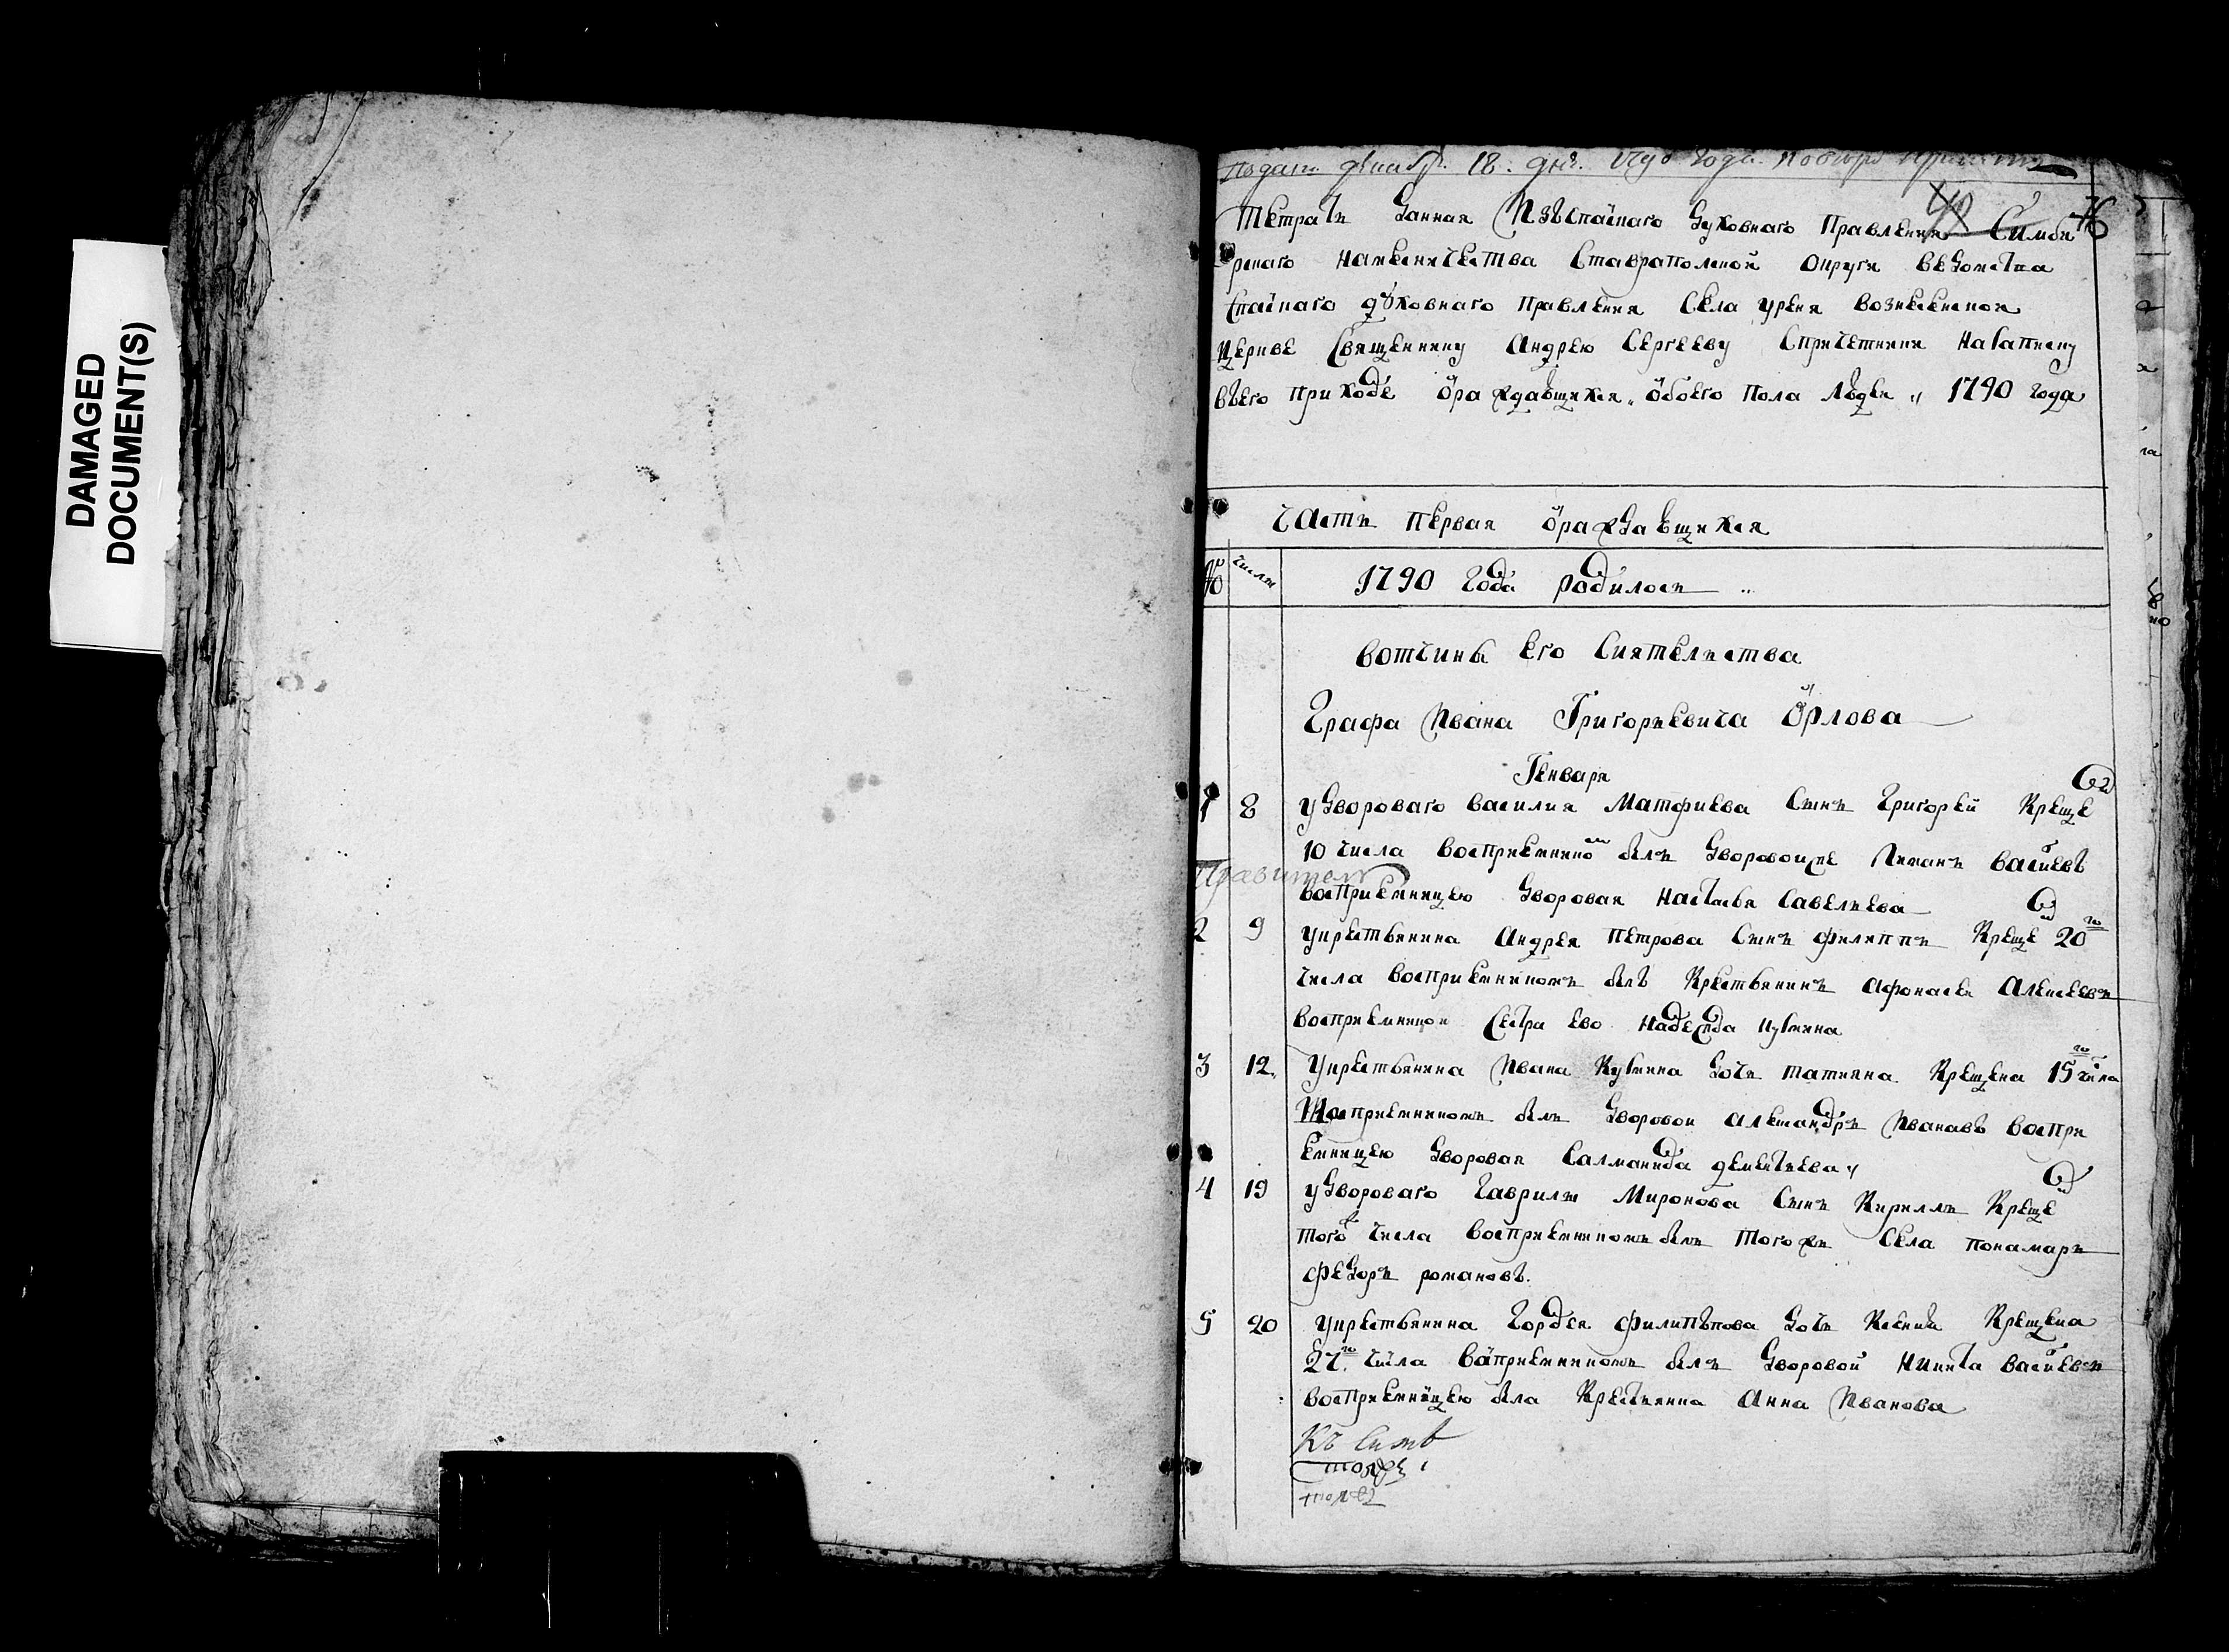 DAMAGED
DOCUMENT(S)
Подан декабр. 18. дня. 1790 года
46
Тетрать данная Изъспаскаго духовнаго Правления Симби
рскаго намесничества Ставрапольской округи ведомства
Спаскаго духовнаго правления Села Уреня вознесенской
церкве Священнику Андрею Сергееву Спричетники На записку
въего приходе ораждавшихся „ обоего пола людеи „ 1790 года
часть первая ораждавшихся
№ числы 1790 Года родилось
вотчины его Сиятельства
Графа Ивана Григорьевича Орлова
Генваря
1 8 у дворового василия Матфиева Сынъ Григореи Крещенъ
10 числа восприемникомъ былъ дворовои же Лукианъ васильевъ
Правитель
восприемницею дворовая настасья Савельева
2 9 у крестьянина Андрея Петрова Сынъ филиппъ Крещенъ 20го
числа восприемникомъ былъ Крестьянинъ афонасеи Алексеевъ
восприемницои Сестра ево надежда кузмина
3 12 У крестьянина Ивана Кузмина дочь татиана Крещена 15го числа
восприемникомъ былъ дворовои александръ Ивановъ воспри
емницею дворовая Саламанида дементьева „
4 19 у дворового Гаврилы Миронова Сынъ Кириллъ Крещенъ
того ж числа восприемникомъ былъ того же Села понамаръ
федоръ романовъ.
5 20 у крестьянина Гордея филипъпова дочь Ксения Крещена
27го числа васприемникомъ былъ дворовой никита васильевъ
восприемницею была Крестьянка Анна Иванова